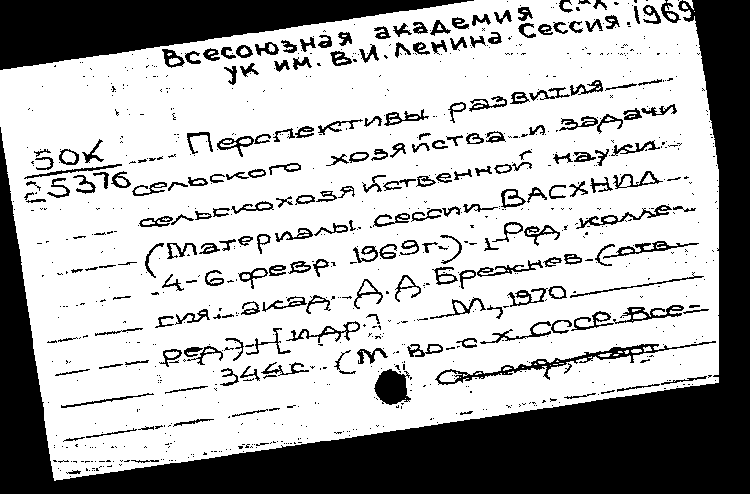 Всесоюзная академия с.-х.
ук им. В.И. Ленина. Сессия. 1969
50К
25376
Перспективы развития
сельского хозяйства и задачи
сельскохозяйственной науки.
(Материалы сессии ВАСХНИЛ
4-6 февр. 1969г.) Ред. колле-
гия: акад. Д.Д. Брежнев (отв.
ред.) [и др.] М., 1970.
344 с. (М во с х СССР. Все-
См след. карт.